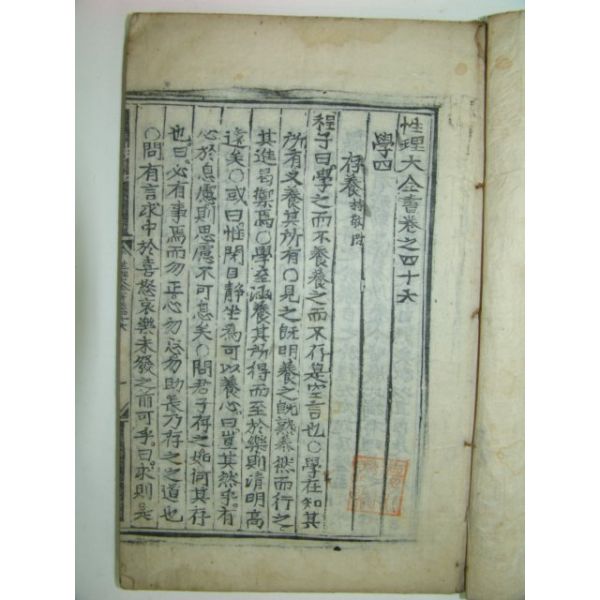 性理大全書卷之四十六
學四
存養 持敬附
程子曰學之而不養養之而不存是空言也○學在知其
所有又養其所有○見之旣明養之旣熟泰然而行之
其進曷禦焉○學至涵養其所得而至於樂則清明高
遠矣○或曰惟閉目靜坐爲可以養心曰豈其然乎有
心於息慮則思慮不可息矣○問君子存之如何其存
也曰必有事焉而勿正心勿忘勿助長乃存之之道也
○問有言求中於喜怒哀樂未發之前可乎曰求則是